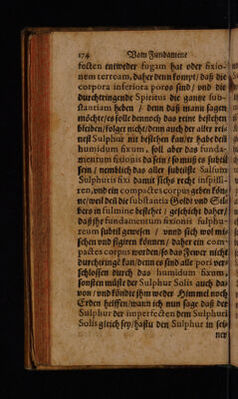 174 Vom Fundament
fecten entweder fugam hat oder fixio-
nem terream, daher denn kompt / daß die
corpora inferiora poros sind / und die
durchtringende Spiritus die gantze sub-
stantiam heben / denn daß mann sagen
möchte / es solle dennoch das reine bestehen
bleiben / folget nicht / denn auch der aller rei-
nest Sulphur nit bestehen kan / er habe deñ
humidum fixum, sol aber das funda-
mentum fixionis da sein / so muß es subtil
sein / nemblich das aller subtilste Salium
Sulphuris fixi damit sichs recht inspissi-
ren, und ein compactes corpus geben kön-
ne / weil deñ die substantia Goldt und Sil-
bers in fulmine bestehet / geschicht daher /
daß ihr fundamentum fixionis sulphu-
reum subtil gewesen / unnd sich wol mi-
schen und figiren können / daher ein com-
pactes corpus worden / so das Fewer nicht
durchtringē kan / denn es sind alle pori ver-
schlossen durch das humidum fixum,
sonsten müste der Sulphur Salis auch da-
von / und köndte ihm weder Himmel noch
Erden helffen / wann ich nun sage daß der
Sulphur der imperfecten dem Sulphuri
Solis gleich sey / hastu den Sulphur in sei-
ner